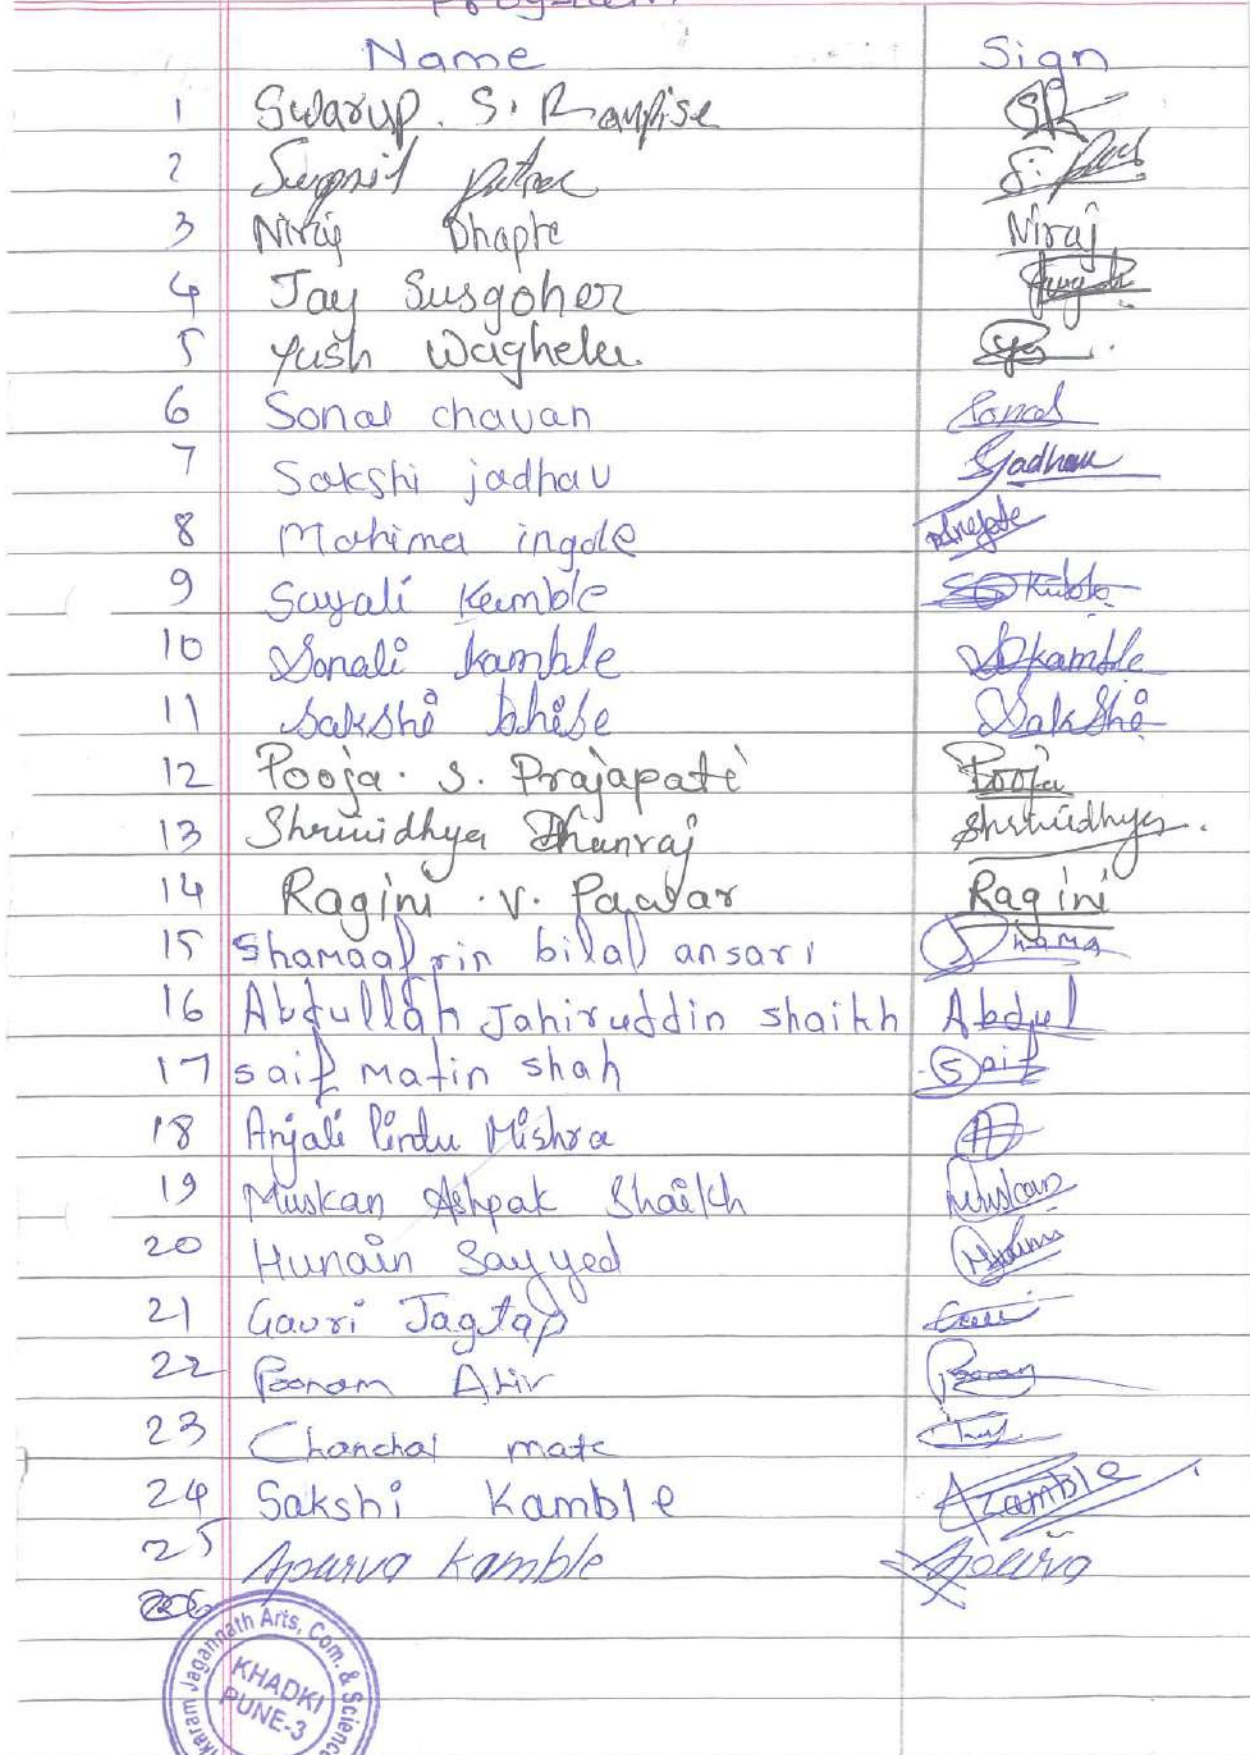 Program
Name Sign
1 Swarup. S. Ranpise SR
2 Swapnil
3 Niraj Dhapte Niraj
4 Jay Susgoher
5 Yush Waghela.
6 Sonal chavan Sonal
7 Sakshi jadhav Sjadhav
8 Mahima ingole
9 Sayali Kamble
10 Sonali kamble Skamble
11 Sakshi bhise Sakshi
12 Pooja. S. Prajapati Pooja
13 Shrinidhya Dhanraj Shrinidhya.
14 Ragini .V. Paawar Ragini
15 Shamaafrin bilal ansari Shama
16 Abdullah Jahiruddin shaikh Abdul
17 saif matin shah Saif
18 Anjali Pindu Mishra A
19 Muskan Ashpak Shaikh Muskan
20 Hunain Sayyed
21 Gauri Jagtap Gauri
22 Poonam Ahir Poonam
23 Chanchal mate
24 Sakshi Kamble Kamble
25 Apurva Kamble Apurva
26
Jagannath Arts, Com. & Science
KHADKI
PUNE-3